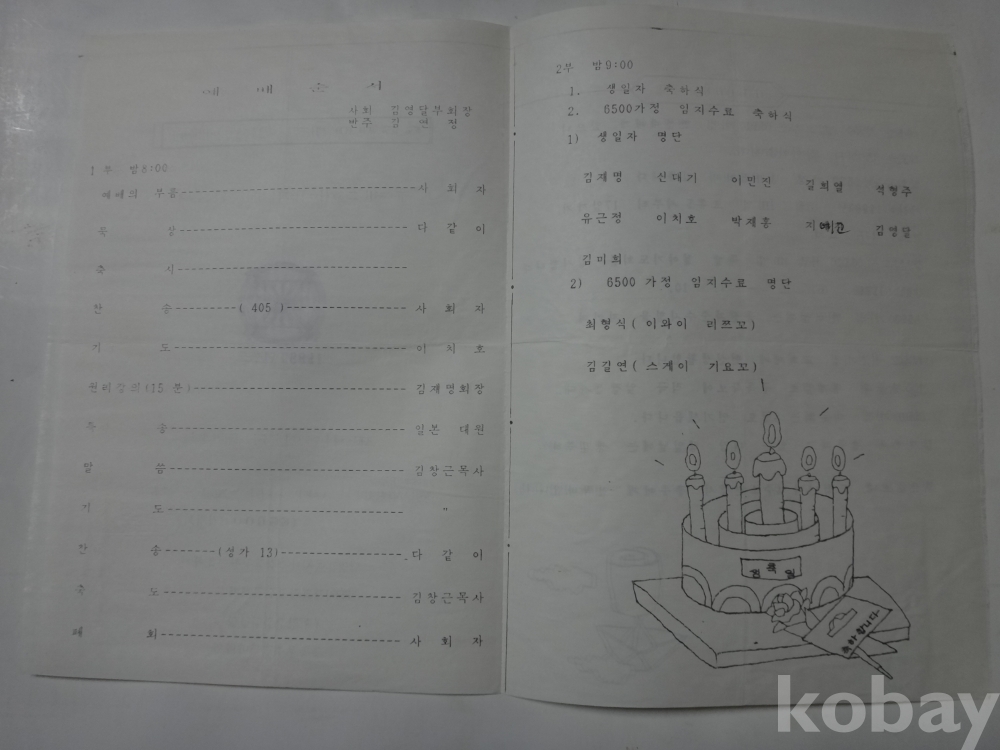 예 배 순 서
사회 김영달부회장
반주 김 연 정
1 부 밤8:00
예배의 부름 사 회 자
묵 상 다 같 이
축 시
찬 송 ( 405 ) 사 회 자
기 도 이 치 호
원리강의(15 분) 김재명회장
특 송 일본 대원
말 씀 김창근목사
기 도 "
찬 송 (성가 13) 다 같 이
축 도 김창근목사
폐 회 사 회 자
2부 밤9:00
1. 생일자 축하식
2. 6500가정 임지수료 축하식
1) 생일자 명단
김재명 신대기 이민진 길최열 적형주
유근정 이치호 박제홍 김명달
김미희
2) 6500 가정 임지수료 명단
최형식( 이와이 리쯔꼬)
김길연( 스게이 기요꼬)
축하합니다
kobay